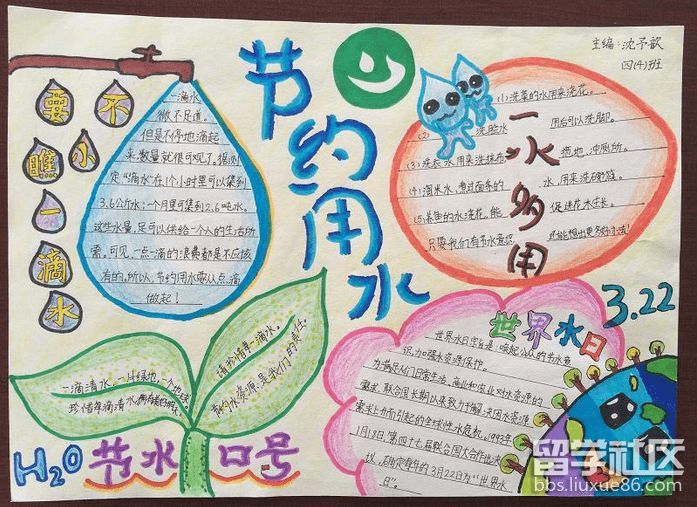 主编：沈予歆
四(4)班
节约用水
要不
瞧小
一
滴
水
一滴水
微不足道。
但是不停地滴起
来，数量就很可观了。据测
定“滴水”在1个小时里可以集到
3.6公斤水；一个月里可集到2.6吨水。
这些水量，足可以供给一个人的生活所
需。可见，一点一滴的浪费都是不应该
有的。所以，节约用水要从点滴
做起！
一水多用
(1)洗菜的水用来浇花。
(2) 洗脸水 用后可以洗脚。
(3)洗衣水用来洗拖布 拖地、冲厕所。
(4)淘米水、煮过面条的 水，用来洗碗筷。
(5)养鱼的水浇花，能 促进花木生长。
只要我们有节水意识
3.22
世界水日
世界水日宗旨是：唤起公众的节水意
识，加强水资源保护。
为满足人们日常生活、商业和农业对水资源的
需求，联合国长期以来致力于解决因水资源
需求上升而引起的全球性水危机。1993年
1月18日，第四十七届联合国大会作出决
议，确定每年的3月22日为“世界水
日”。
请珍惜每一滴水。
节约水资源，是我们的责任。
一滴清水，一片绿地，一个地球
珍惜每滴清水
H₂O 节水口号
留学社区
bbs.liuxue86.com